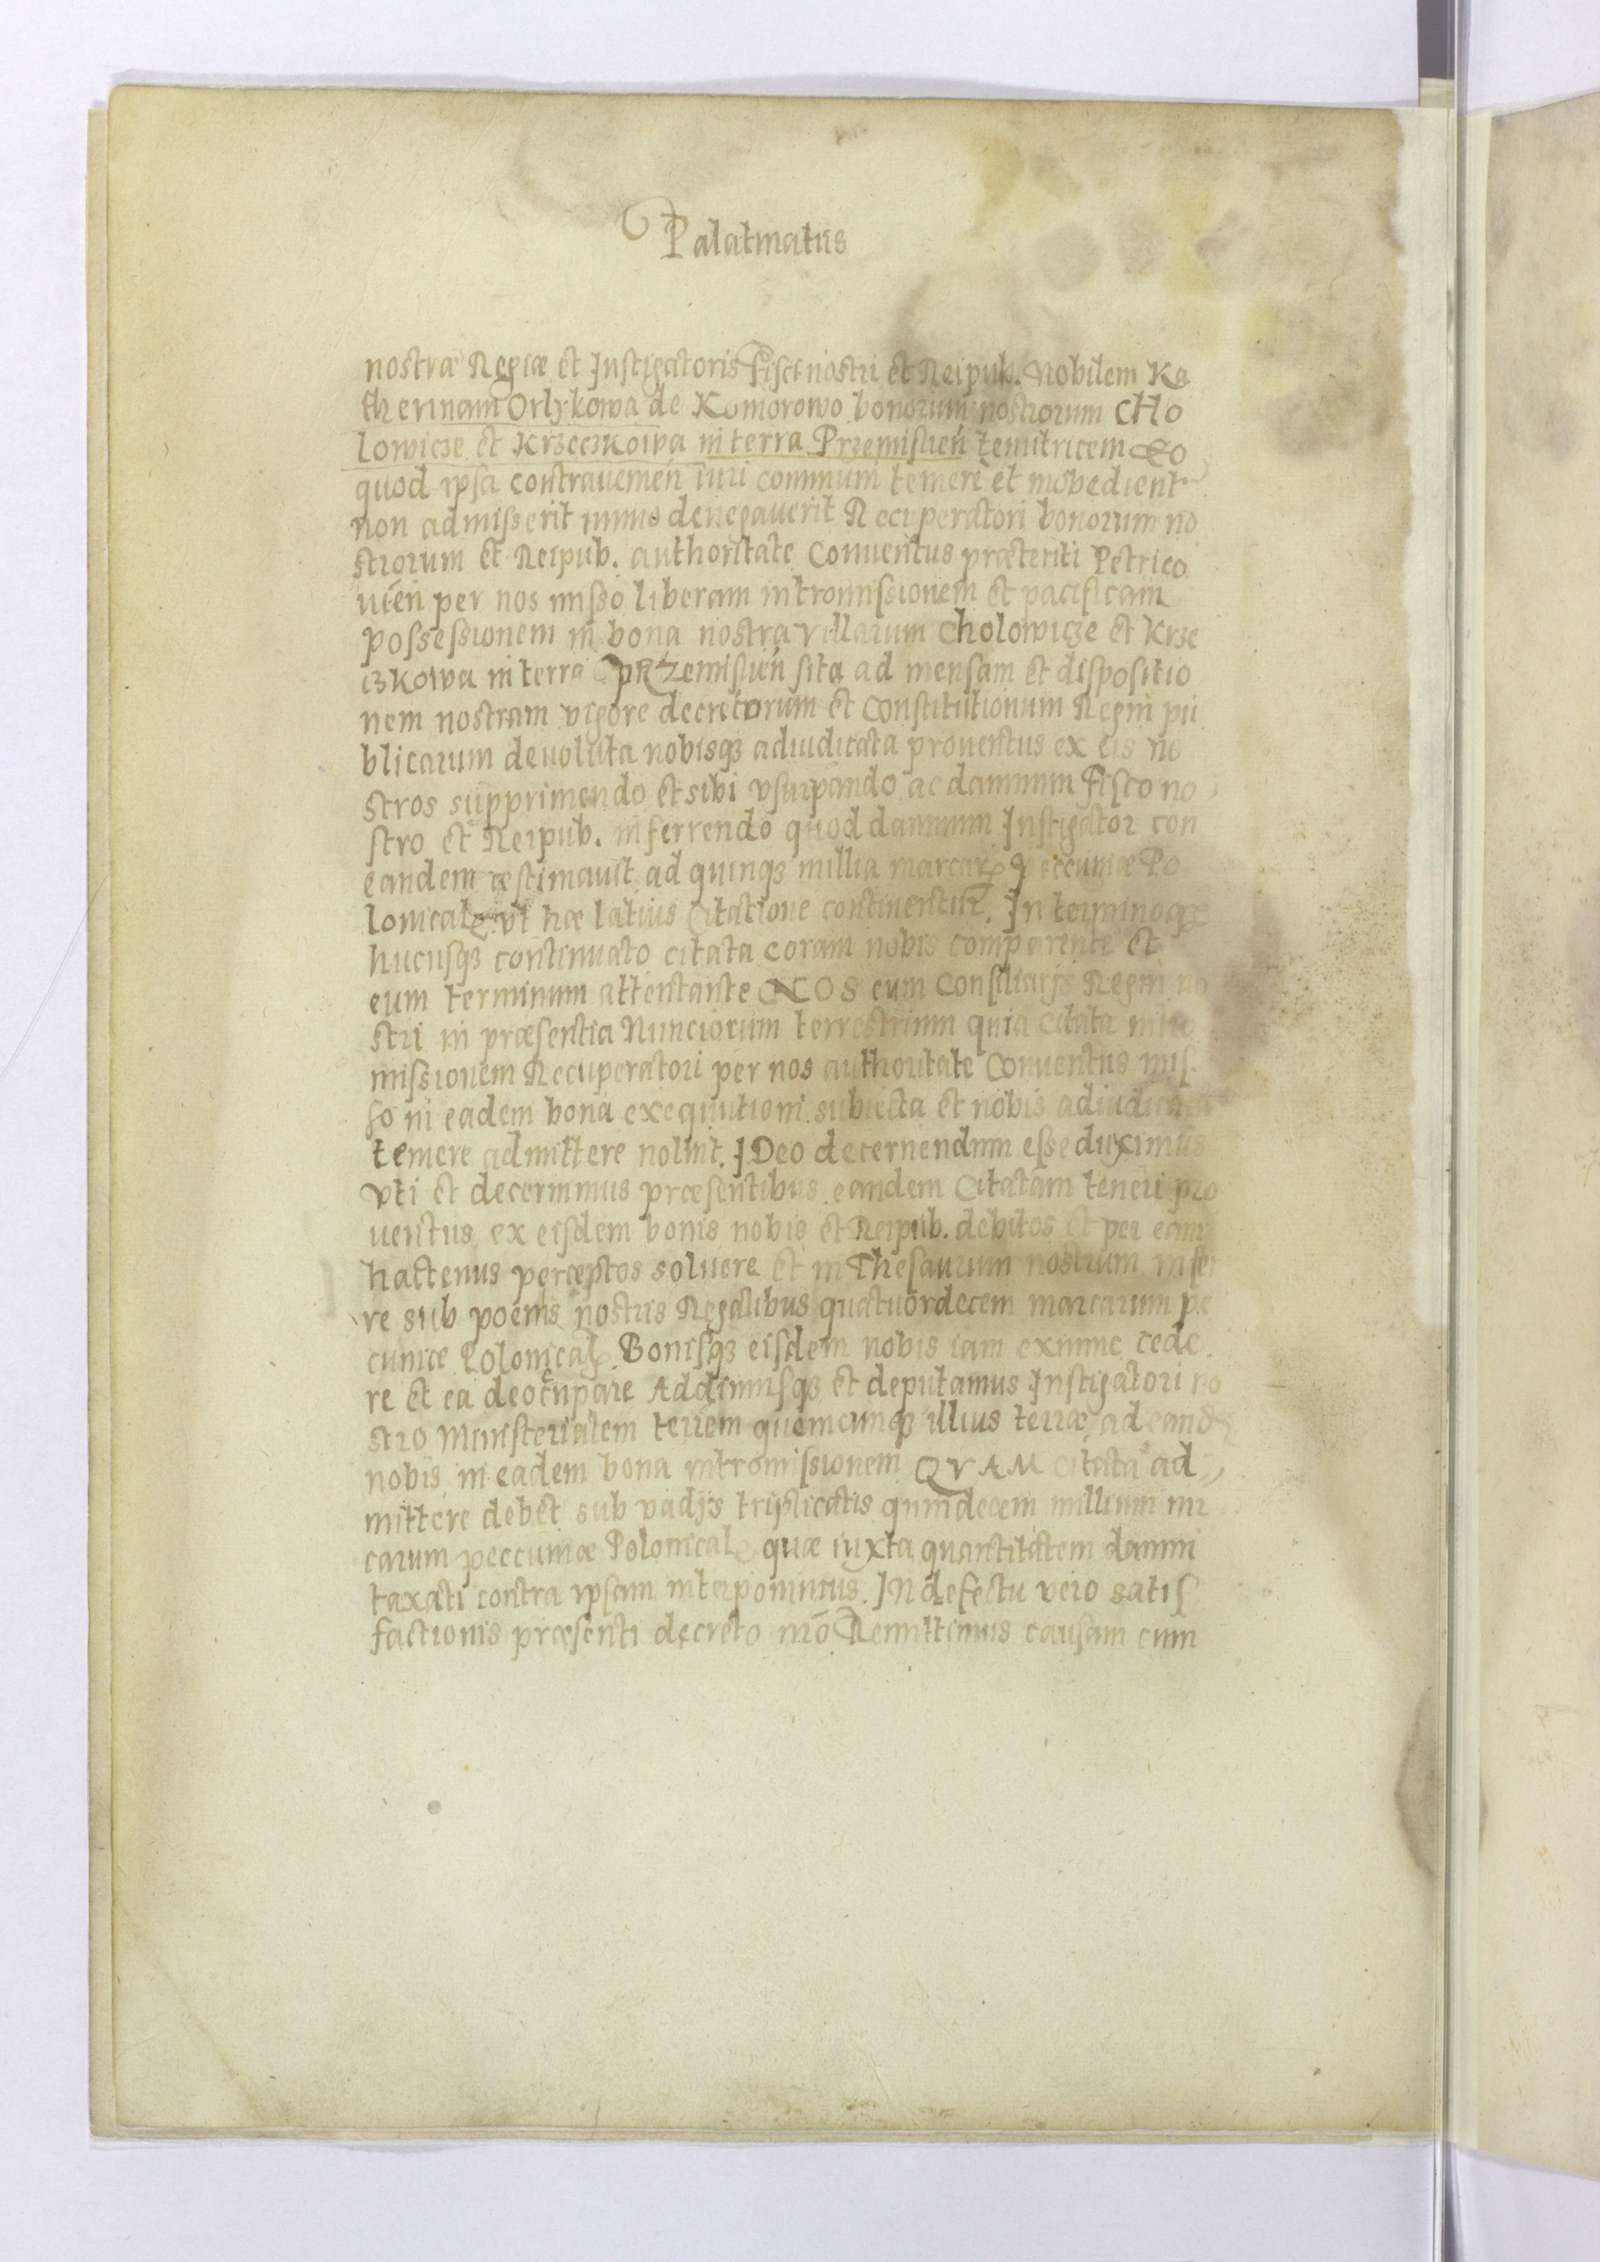 Palatinatus
nostræ Regiæ et Instigatoris Fisci nostri et Reipub. Nobilem Ka
therinam Orlykowa de Komorowo bonorum nostrorum Cho
lowicze et Krzeczkowa in terra Przemislień tenutricem Eo
quod ipsa contrauenień iuri communi temere et inobedient
non admisserit immo denegauerit Recuperatori bonorum no
strorum et Reipub. authoritate Conuentus præteriti Petrico
uień per nos misso liberam intromissionem et pacificam
possessionem in bona nostra villarum Cholowicze et Krze
czkowa in terra Przemislień sita ad mensam et dispositio
nem nostram vigore decretorum et Constitutionum Regni pu
blicarum deuoluta nobisqȝ adiudicata prouentus ex eis no
stros supprimendo et sibi vsurpando ac damnum Fisco no
stro et Reipub. inferrendo quod damnum Instigator con
eandem æstimauit ad quinqȝ millia marcarꝝ peccuniæ Po
lonicalꝭ vt hæ latius Citatione continentur. In terminoqȝ
hucusqȝ continuato citata coram nobis comparente et
eum terminum attentante NOS cum Consiliarijs Regni no
stri in præsentia Nunciorum terrestrium quia citata intro
missionem Recuperatori per nos authoritate Conuentus mis
so in eadem bona exequutioni subiecta et nobis adiudicata
temere admittere noluit. IDeo decernendum esse duximus
vti et decernimus præsentibus eandem Citatam teneri pro
uentus ex eisdem bonis nobis et Reipub. debitos et per eam
hactenus perceptos soluere et in Thesaurum nostrum infer
re sub poenis nostris Regalibus quatuordecem marcarum pe
cuniæ Polonicalꝭ Bonisqȝ eisdem nobis iam exnunc cede
re et ea deoccupare Addimusqȝ et deputamus Instigatori no
stro Ministerialem terrem quemcunqȝ illius terræ ad eand
nobis in eadem bona intromissionem QVAM citata ad
mittere debet sub vadijs triplicatis quindecem millium mr
carum peccuniæ Polonicalꝭ quæ iuxta quantitatem damni
taxati contra ipsam interponimus. IN defectu vero satis
factionis præsenti decreto nrō Remittimus causam cum